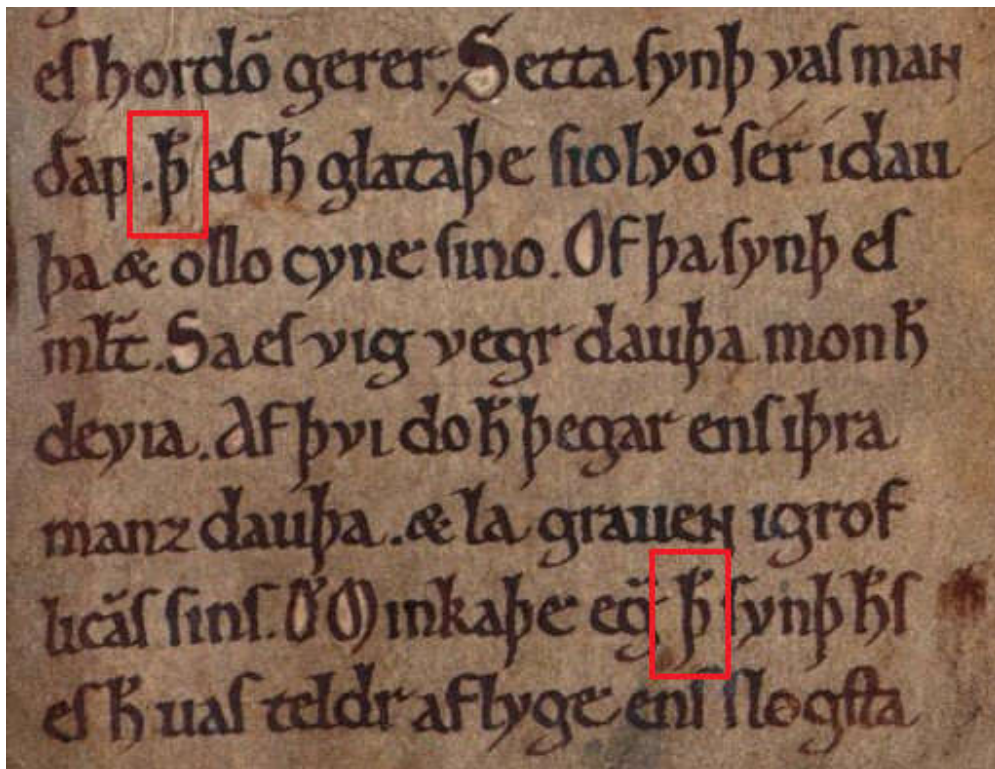 eſ hordō gerer. Setta ſynþ vaſ maɴ
d̄ap. þ̄ eſ h̄ glataþe ſiolvō ſer idau
þa & ollo cyne ſino. Of þa ſynþ eſ
mł̄t. Sa eſ vig vegr dauþa mon h̄
deyia. Af þvi do h̄ þegar enſ iþra
manz dauþa. & la graueɴ igrof
licāſ ſinſ. Minkaþe eg̅ þ̄ ſynþ h̄ſ
eſ h̄ uaſ teldr af lyge enſ ſløgſta